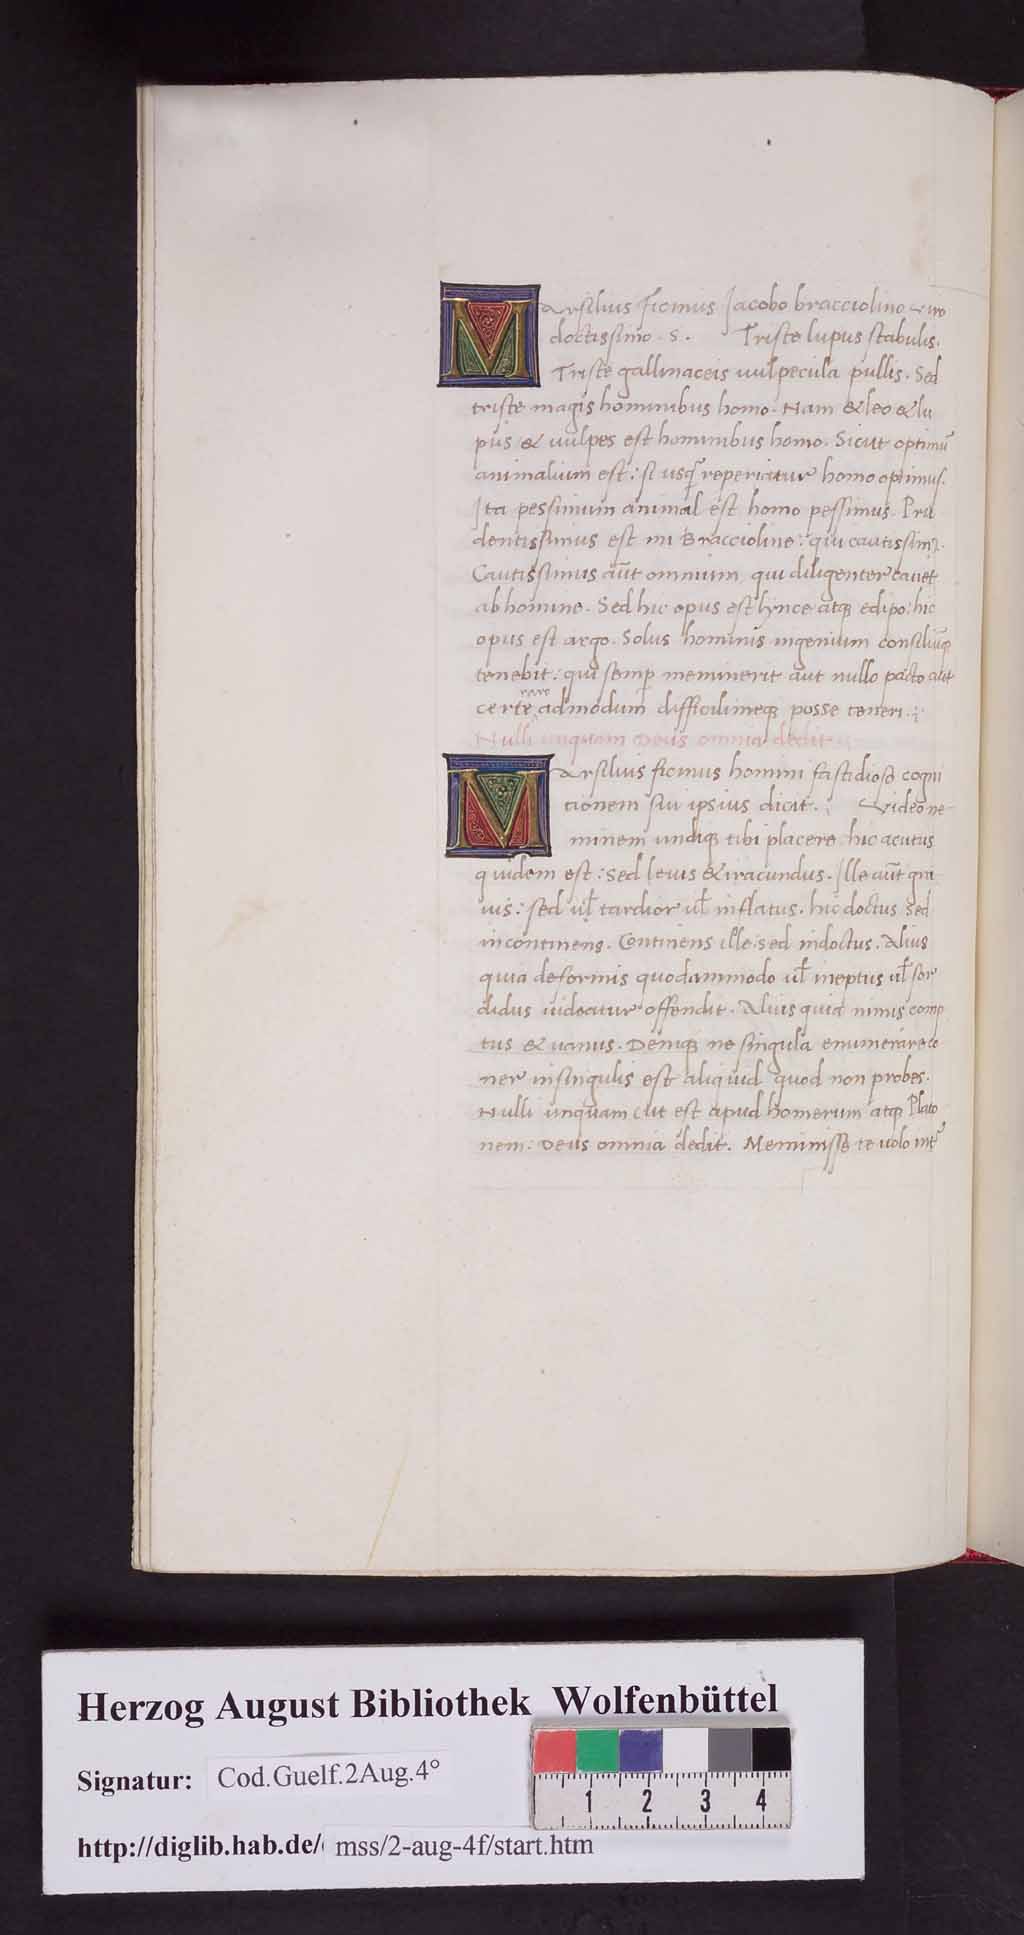 Marsilius ficinus Jacobo bracciolino viro
doctissimo . S . Triste lupus stabulis.
Triste gallinaceis uulpecula pullis. Sed
triste magis hominibus homo. Nam & leo & lu
pus & uulpes est hominibus homo. Sicut optimū
animalium est: si usq̄ reperiatur homo optimus.
Ita pessimum animal est homo pessimus. Pru
dentissimus est mi Braccioline: qui cautissimꝰ.
Cautissimus aūt omnium qui diligenter cauet
ab homine. Sed hic opus est lynce atqꝫ edipo: hic
opus est argo. Solus hominis ingenium consiliūqꝫ
tenebit: qui semꝑ meminerit aut nullo pacto aut
certe raro admodum difficilimeqꝫ posse teneri.
Nulli unquam Deus omnia dedit
Marsilius ficinus homini fastidioso cogni
tionem sui ipsius dicit. Video ne
minem undiqꝫ tibi placere hic acutus
quidem est: sed leuis & iracundus. Ille aūt gra
uis: sed ul̄ tardior ul̄ inflatus. hic doctus sed
incontinens. Continens ille sed indoctus. Alius
quia deformis quodammodo ul̄ ineptus ul̄ sor
didus uideatur offendit. Alius quia nimis comp
tus & uanus. Deniqꝫ ne singula enumerare co
ner in singulis est aliquid quod non probes.
Nulli unquam (ut est apud homerum atqꝫ Plato
nem: Deus omnia dedit. Meminisse te uolo int̄
Herzog August Bibliothek Wolfenbüttel
Signatur: Cod.Guelf.2Aug.4°
http://diglib.hab.de/ mss/2-aug-4f/start.htm
1 2 3 4